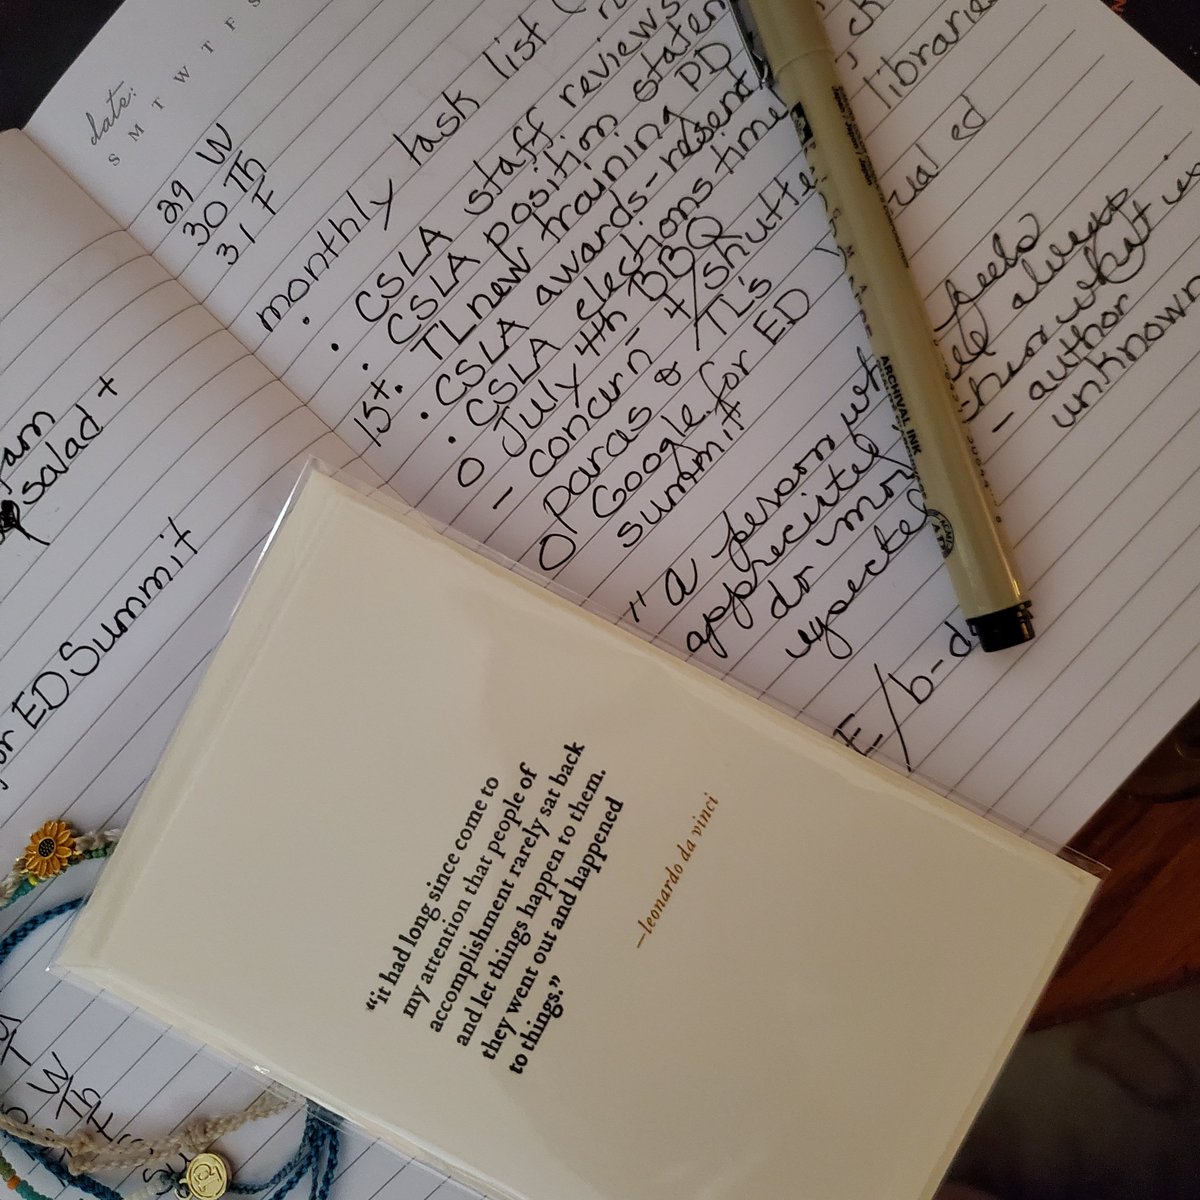 date:
S M T W T F S
29 W
30 Th
31 F
monthly task list (
• CSLA staff reviews
• CSLA position statem
• TL new training PD
1st. CSLA awards - resend
• CSLA elections time
• July 4th BBQ
o concurn - 4/shutte
- paras & /TL's
o Google for ED
summit
ch
librarie
ual ed
"A person w
feels
appreciated
will always
do mor
than what is
expected
- author
unknown
E/b-d
ARCHIVAL INK
salad +
or ED Summit
T
W
Th
F
Su
"it had long since come to
my attention that people of
accomplishment rarely sat back
and let things happen to them.
they went out and happened
to things."
—leonardo da vinci